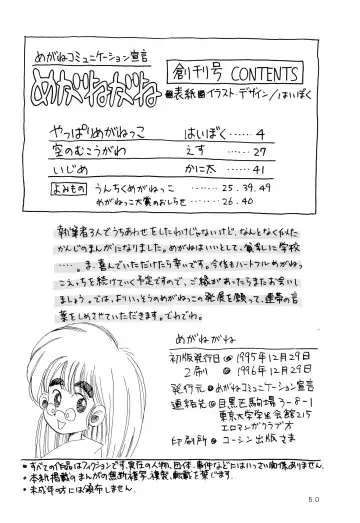 めがねコミュニケーション宣言
めがねがね
創刊号 CONTENTS
表紙 イラスト・デザイン/はいぼく
やっぱりめがねっこ はいぼく……4
空のむこうがわ えす ……27
いじめ かに太 ……41
よみもの うんちくめがねっこ ……25.39.49
めがねっこ大賞のおしらせ ……26.40
執筆者3人でうちあわせをしたわけじゃないけど、なんとなく似た
かんじのまんがになりました。めがねはいいとして、皆して学校
……。ま、喜んでいただけたら幸いです。今後もハートフルめがねっ
こえっちを続けていく予定ですので、ご縁があったらまたお会いし
ましょう。では、よりいっそうのめがねっこの発展を願って、連帯の言
葉をしめさせていただきます。でわでわ。
めがねがね
初版発行日@1995年12月29日
2刷@1996年12月29日
発行元@めがねコミュニケーション宣言
連絡先@目黒区駒場3-8-1
東京大学学生会館215
エロマンガクラブ方
印刷所@コーシン出版さま
・すべての作品はフィクションです。実在の人物、団体、事件などにはいっさい関係ありません。
・本誌掲載のまんがの無断複写、複製、転載を禁じます。
・未成年の方には頒布しません。
50